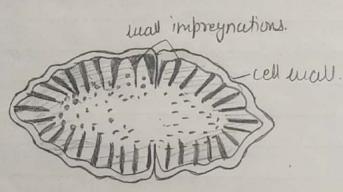 wall impreynations.
cell wall.